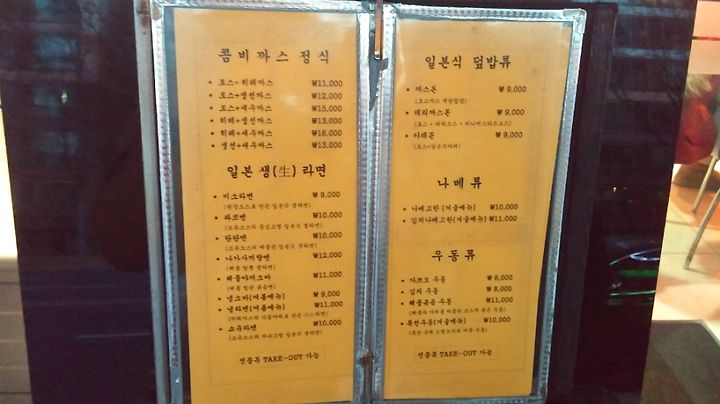 콤비까스 정식
• 로스+히레까스 ₩11,000
• 로스+생선까스 ₩12,000
• 로스+새우까스 ₩15,000
• 히레+생선까스 ₩13,000
• 히레+새우까스 ₩16,000
• 생선+새우까스 ₩13,000
일본 생(生) 라면
• 미소라멘 ₩ 9,000
• 파코멘 ₩10,000
• 탄탄멘 ₩10,000
• 나가사끼짬뽕 ₩12,000
• 해물야끼소바 ₩11,000
• 냉소바(여름메뉴) ₩ 9,000
• 냉라멘(여름메뉴) ₩11,000
• 쇼유라멘 ₩10,000
전품목 TAKE-OUT 가능
일본식 덮밥류
• 까스돈 ₩ 9,000
• 데리까스돈 ₩ 9,000
• 카레돈 ₩ 9,000
(로스+일본식카레)
나베류
• 나베고란 (겨울메뉴) ₩10,000
• 김치나베고란(겨울메뉴) ₩11,000
우동류
• 가쯔오 우동 ₩ 8,000
• 김치 우동 ₩ 8,000
• 해물볶음 우동 ₩11,000
• 특선우동(겨울메뉴) ₩10,000
전품목 TAKE-OUT 가능